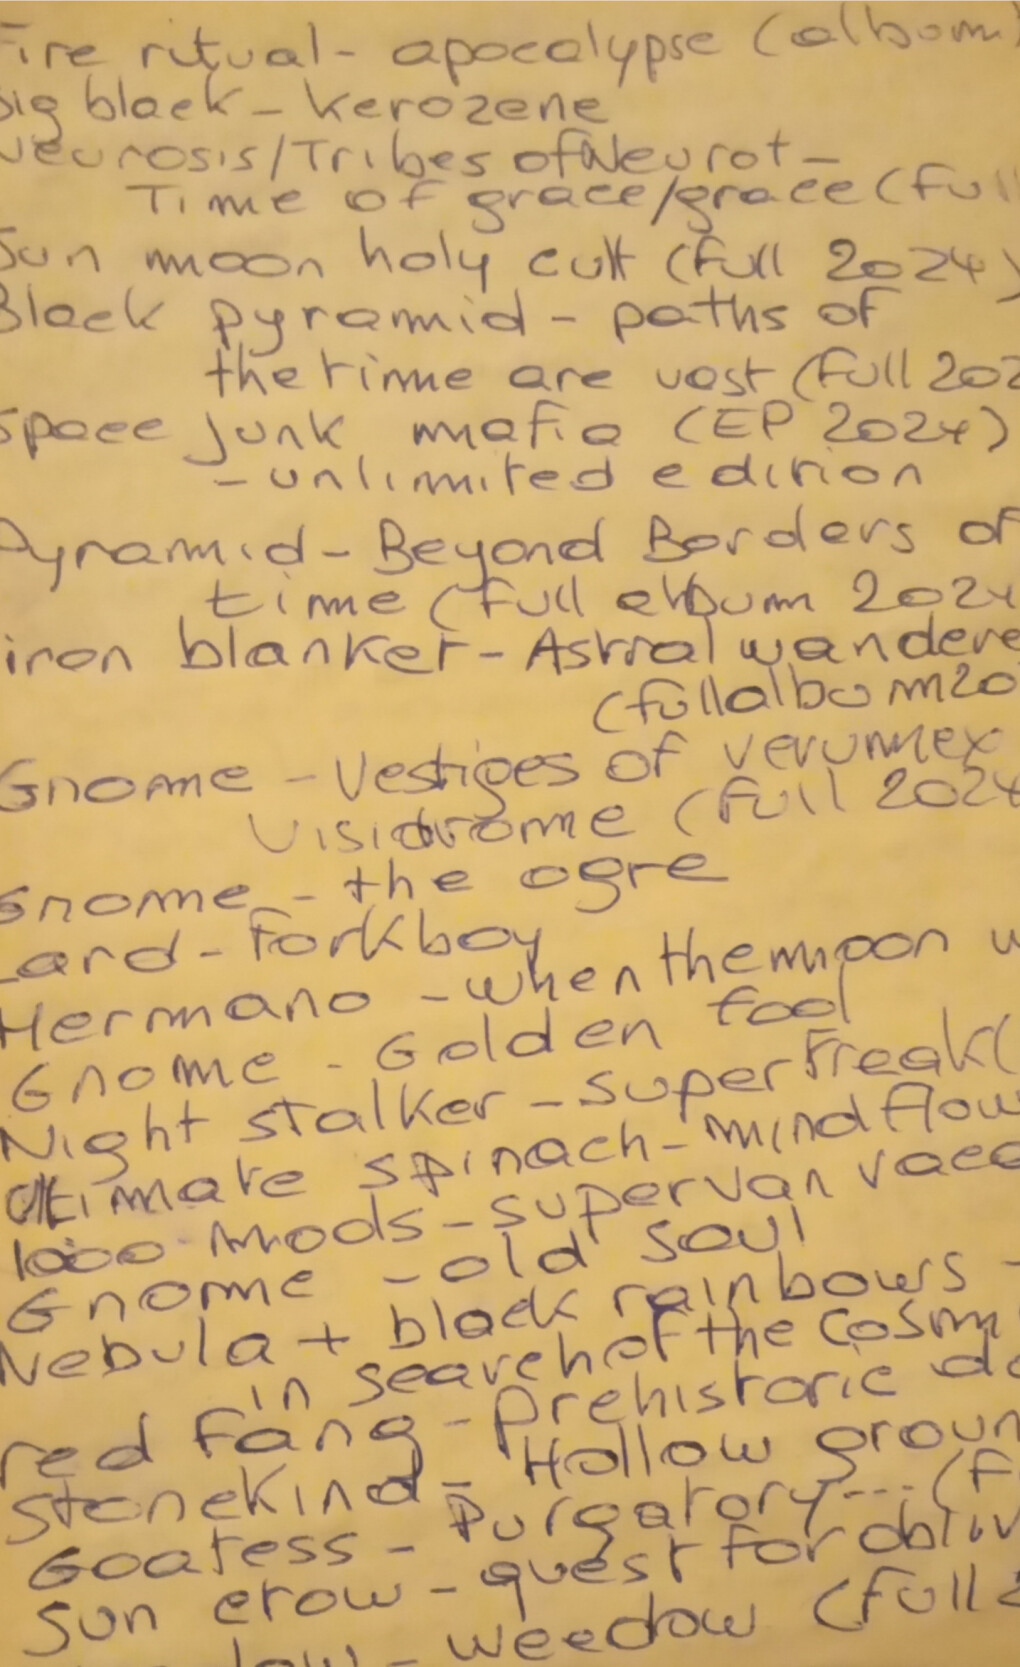 Fire ritual - apocalypse (albom)
Big black - Kerozene
Neurosis/Tribes of Neurot -
Time of grace/grace (full
Sun moon holy cult (full 2024)
Black pyramid - paths of
the time are vast (full 202
Space junk mafia (EP 2024)
- unlimited edition
Pyramid - Beyond Borders of
time (full album 2024
iron blanket - Astral wandere
(full album 20
Gnome - Vestiges of verumex
Visidrome (full 2024
Gnome - the ogre
Lard - Forkboy
Hermano - when the moon w
Gnome - Golden fool
Night stalker - superfreak (
Ultimate spinach - mind flow
1000 mods - supervan vace
Gnome - old soul
Nebula + black rainbows -
in search of the Cosmi
red Fang - Prehistoric do
stonekind - Hollow groun
Goatess - Purgatory... (F
Sun crow - quest for obliv
- weedow (full 2